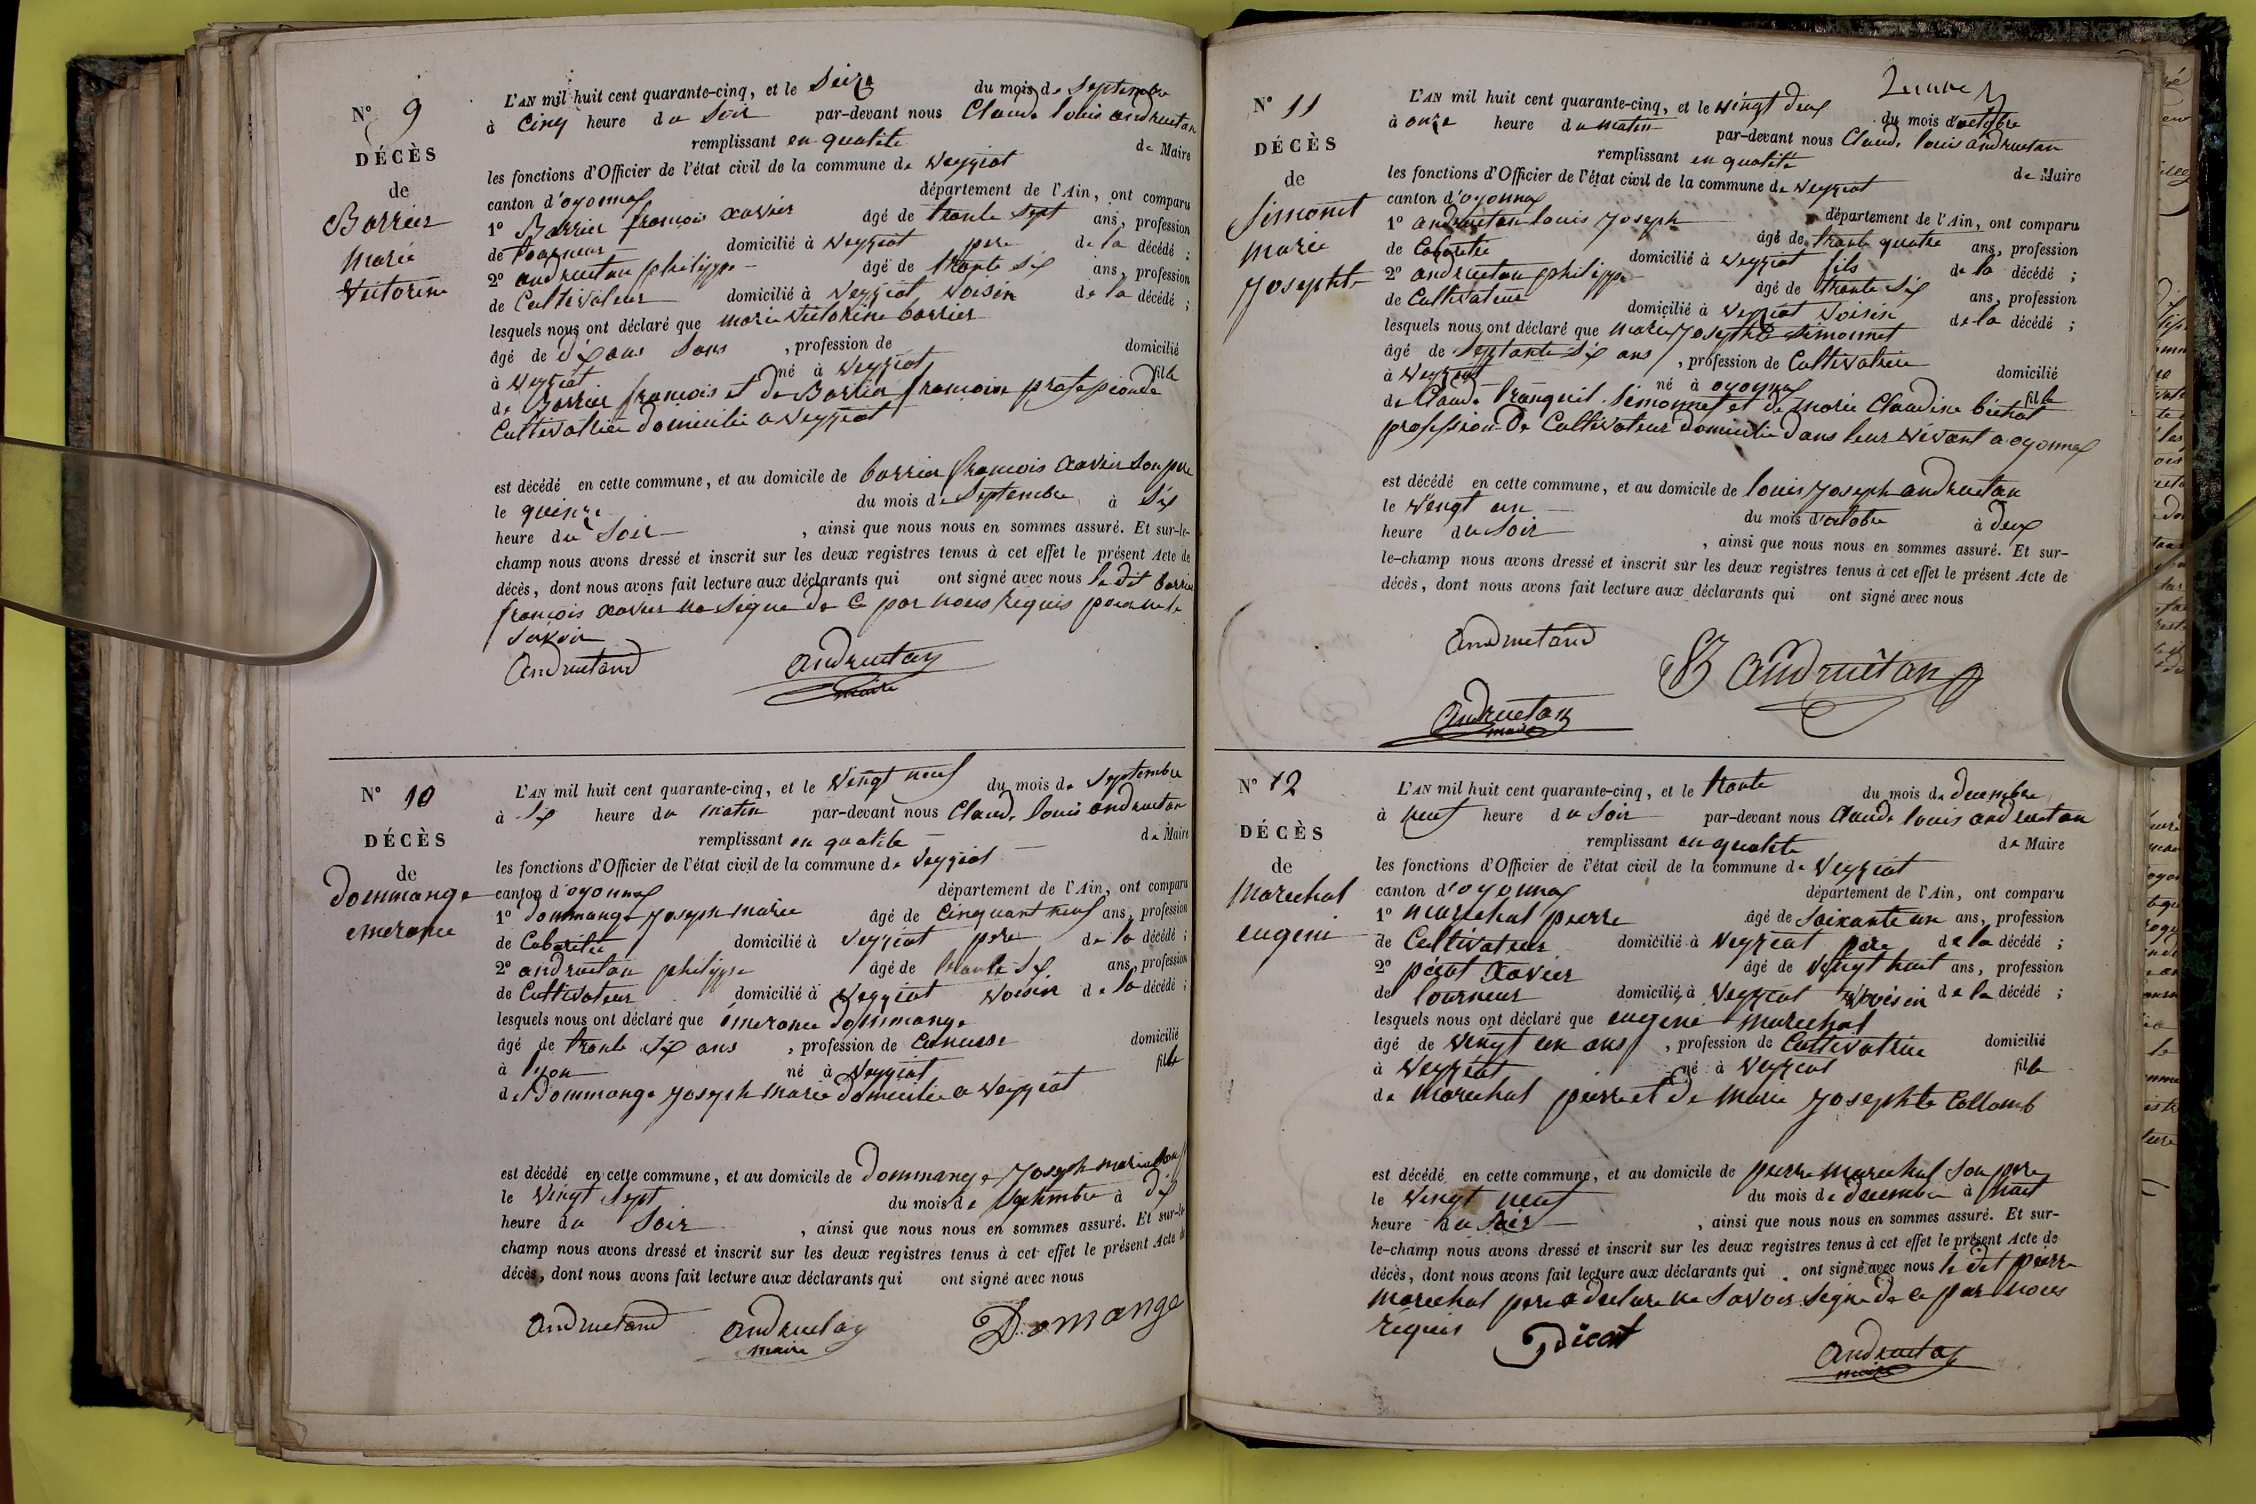 N° 9
DÉCÈS
de
Barrier
Marie
Victorine
L'AN mil huit cent quarante-cinq, et le Seize du mois de Septembre
à Cinq heure du Soir par-devant nous Claude louis andruetan
remplissant en qualité de Maire
les fonctions d'Officier de l'état civil de la commune de Veyziat
canton d'oyonnax département de l'Ain, ont comparu
1° Barrier françois xavier âgé de trente sept ans, profession
de tourneur domicilié à Veyziat pere de la décédé ;
2° andruetan philippe âgé de trente six ans, profession
de Cultivateur domicilié à Veyziat Voisin de la décédé ;
lesquels nous ont déclaré que marie Victorine barrier
âgé de dix ans Sans , profession de domicilié
à Veyziat né à Veyziat fille
de Barrier françois et de Barrier françoise profession de
Cultivatrice domicilié a Veyziat
est décédé en cette commune, et au domicile de barrier françois Xavier Son pere
le quinze du mois de Septembre à Six
heure du Soir , ainsi que nous nous en sommes assuré. Et sur-le-
champ nous avons dressé et inscrit sur les deux registres tenus à cet effet le présent Acte de
décès, dont nous avons fait lecture aux déclarants qui ont signé avec nous le dit barrier
françois xavier na Signe de Ce par nous requis pour ne le
Savoir
Andruetand andruetan
maire
N° 10
DÉCÈS
de
dommange
emerance
L'AN mil huit cent quarante-cinq, et le Vingt neuf du mois de Septembre
à Six heure du matin par-devant nous Claude louis andruetan
remplissant en qualite de Maire
les fonctions d'Officier de l'état civil de la commune de Veyziat
canton d'oyonnax département de l'Ain, ont comparu
1° dommange Joseph marie âgé de Cinquant neuf ans, profession
de Cabaretié domicilié à Veyziat pere de la décédé ;
2° andruetan philippe âgé de trante Six ans, profession
de Cultivateur domicilié à Veyziat Voisin de la décédé ;
lesquels nous ont déclaré que émerance dommange
âgé de trente Six ans , profession de domicilié
à lyon né à Veyziat fille
de Dommange Joseph marie domicilié a Veyziat
est décédé en cette commune, et au domicile de dommange Joseph marie
le Vingt Sept du mois de Septembre à dix
heure du Soir , ainsi que nous nous en sommes assuré. Et sur-le-
champ nous avons dressé et inscrit sur les deux registres tenus à cet effet le présent Acte de
décès, dont nous avons fait lecture aux déclarants qui ont signé avec nous
Andruetand andruetan Domange
maire
N° 11
DÉCÈS
de
Simonet
Marie
Josephte
L'AN mil huit cent quarante-cinq, et le vingt deux du mois d'octobre
à onze heure du matin par-devant nous Claude louis andruetan
remplissant en qualité de Maire
les fonctions d'Officier de l'état civil de la commune de Veyziat
canton d'oyonnax département de l'Ain, ont comparu
1° andruetan louis Joseph âgé de trante quatre ans, profession
de Cabaretié domicilié à Veyziat fils de la décédé ;
2° andruetan philippe âgé de trante Six ans, profession
de Cultivateur domicilié à Veyziat Voisin de la décédé ;
lesquels nous ont déclaré que marie Josephte Simonnet
âgé de Septante Six ans , profession de Cultivatrice domicilié
à Veyziat né à oyonnax fille
de Claude Tranquil Simonnet et de marie Claudine béchat
profession De Cultivateur domicilié dans leur Vivant a oyonnax
est décédé en cette commune, et au domicile de louis Joseph andruetan
le Vingt un du mois d'octobre à deux
heure du Soir , ainsi que nous nous en sommes assuré. Et sur-
le-champ nous avons dressé et inscrit sur les deux registres tenus à cet effet le présent Acte de
décès, dont nous avons fait lecture aux déclarants qui ont signé avec nous
Andruetand Andruétan
Andruetan
maire
N° 12
DÉCÈS
de
Marechal
eugeni
L'AN mil huit cent quarante-cinq, et le trante du mois de decembre
à neuf heure du Soir par-devant nous Claude louis andruetan
remplissant en qualite de Maire
les fonctions d'Officier de l'état civil de la commune de Veyziat
canton d'oyonnax département de l'Ain, ont comparu
1° marechal pierre âgé de Soixante un ans, profession
de Cultivateur domicilié à Veyziat pere de la décédé ;
2° picot Xavier âgé de Vingt huit ans, profession
de tourneur domicilié à Veyziat Voisin de la décédé ;
lesquels nous ont déclaré que eugene marechal
âgé de Vingt un ans , profession de Cultivatrice domicilié
à Veyziat né à Veyziat fille
de marechal pierre et De Marie Josephte Collomb
est décédé en cette commune, et au domicile de pierre marechal Son pere
le Vingt neuf du mois de decembre à huit
heure du Soir , ainsi que nous nous en sommes assuré. Et sur-
le-champ nous avons dressé et inscrit sur les deux registres tenus à cet effet le présent Acte de
décès, dont nous avons fait lecture aux déclarants qui ont signé avec nous le dit pierre
marechal pere a declare ne Savoir Signe de ce par nous
requis
picot andruetan
maire